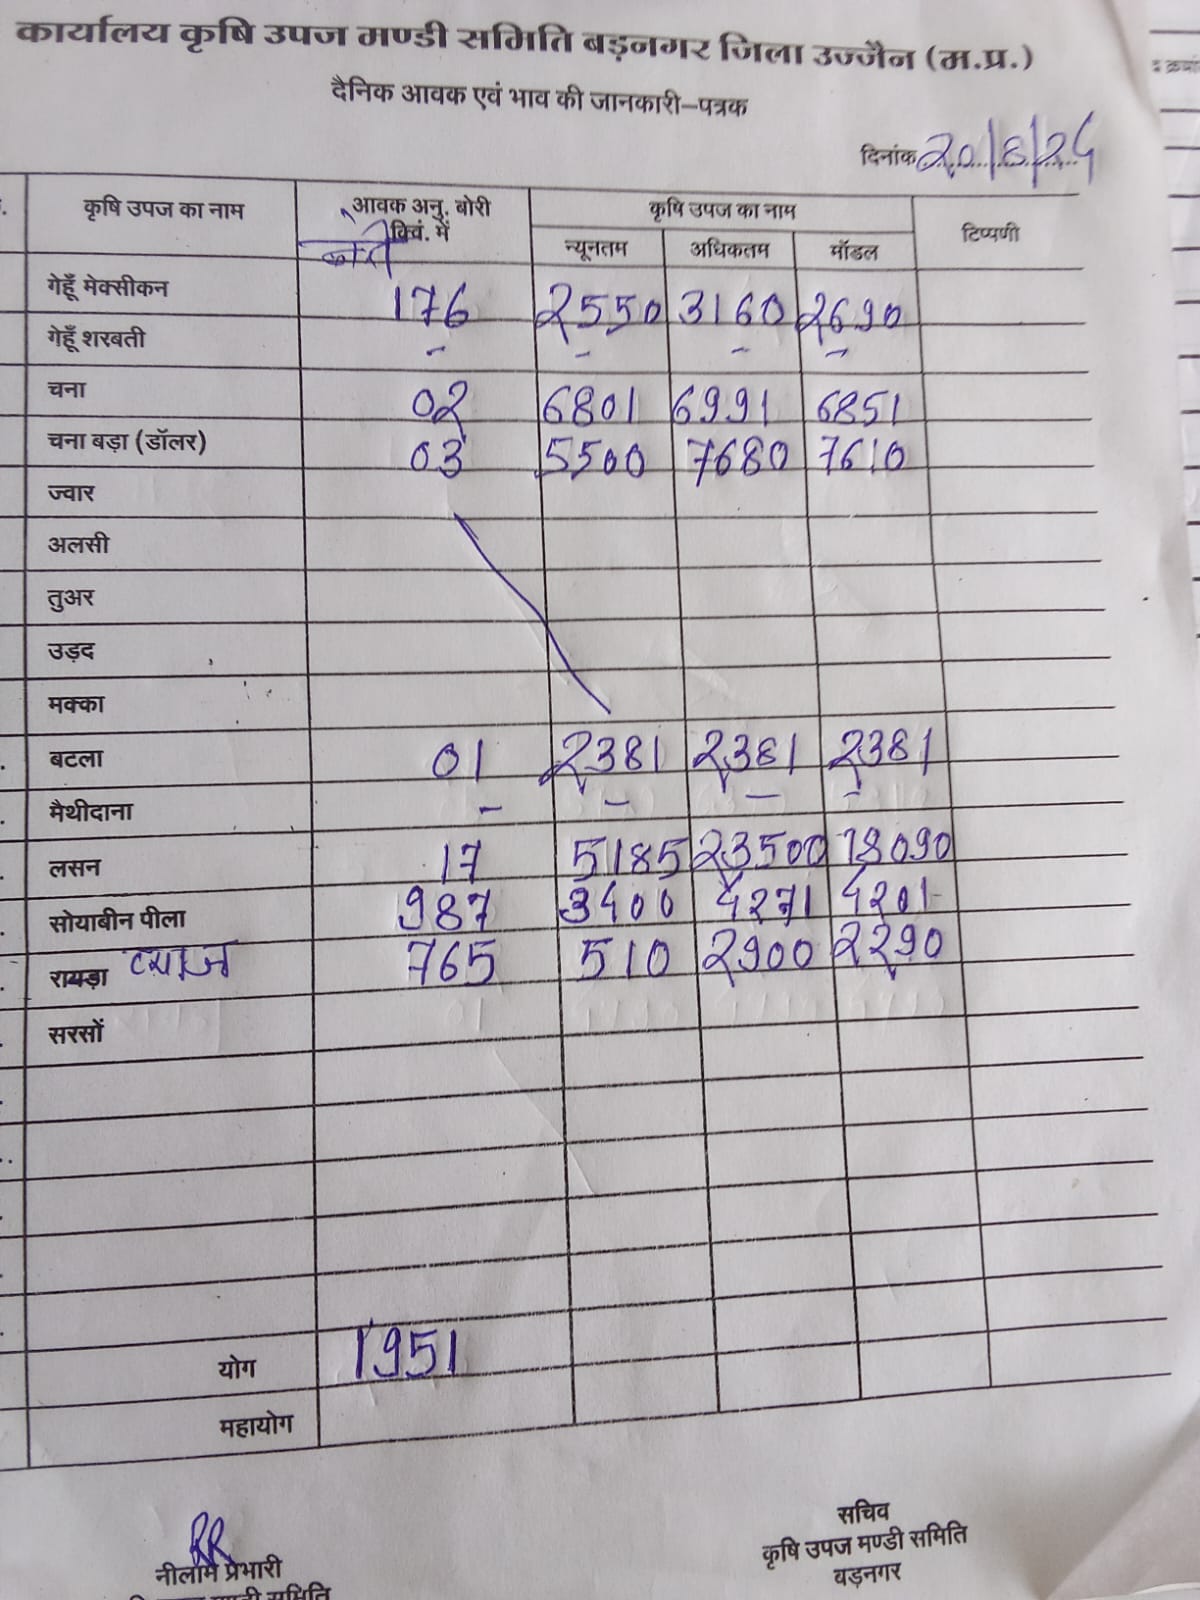 कार्यालय कृषि उपज मण्डी समिति बड़नगर जिला उज्जैन (म.प्र.)
दैनिक आवक एवं भाव की जानकारी–पत्रक
दिनांक 20/8/24
कृषि उपज का नाम आवक अनु. बोरी क्विं. में कृषि उपज का नाम टिप्पणी
न्यूनतम अधिकतम मॉडल
गेहूँ मेक्सीकन 176 2550 3160 2690
गेहूँ शरबती - - - -
चना 02 6801 6991 6851
चना बड़ा (डॉलर) 03 5500 7680 7610
ज्वार
अलसी
तुअर
उड़द
मक्का
बटला 01 2381 2381 2381
मैथीदाना - - - -
लसन 17 5185 23500 18090
सोयाबीन पीला 987 3400 4271 4201
रायड़ा प्याज 765 510 2900 2290
सरसों
योग 1951
महायोग
नीलाम प्रभारी
सचिव
कृषि उपज मण्डी समिति
बड़नगर